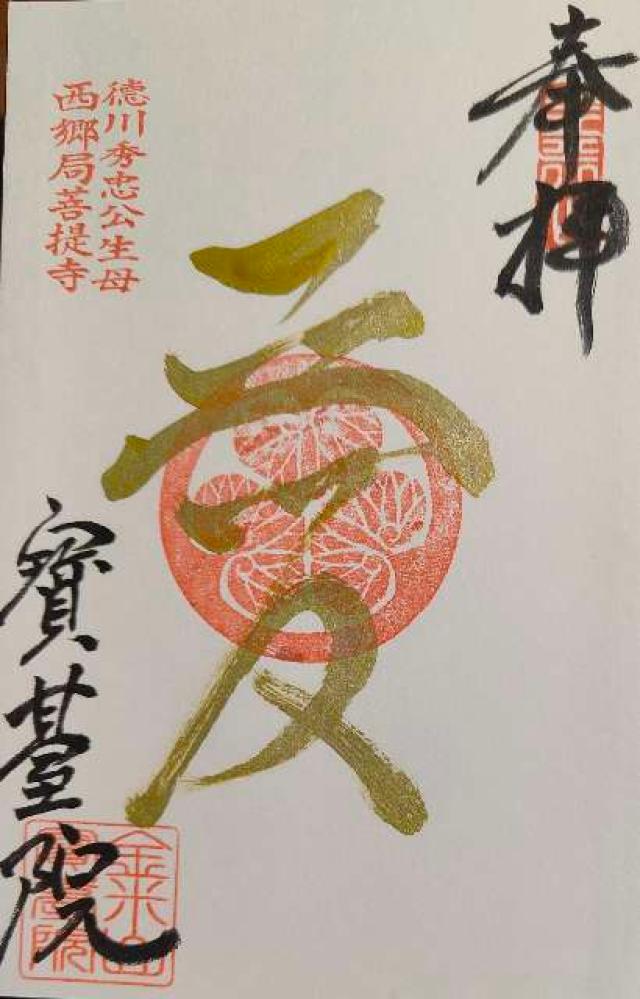 奉拝
愛
徳川秀忠公生母
西郷局菩提寺
寳䑓院
金米山
寳䑓院